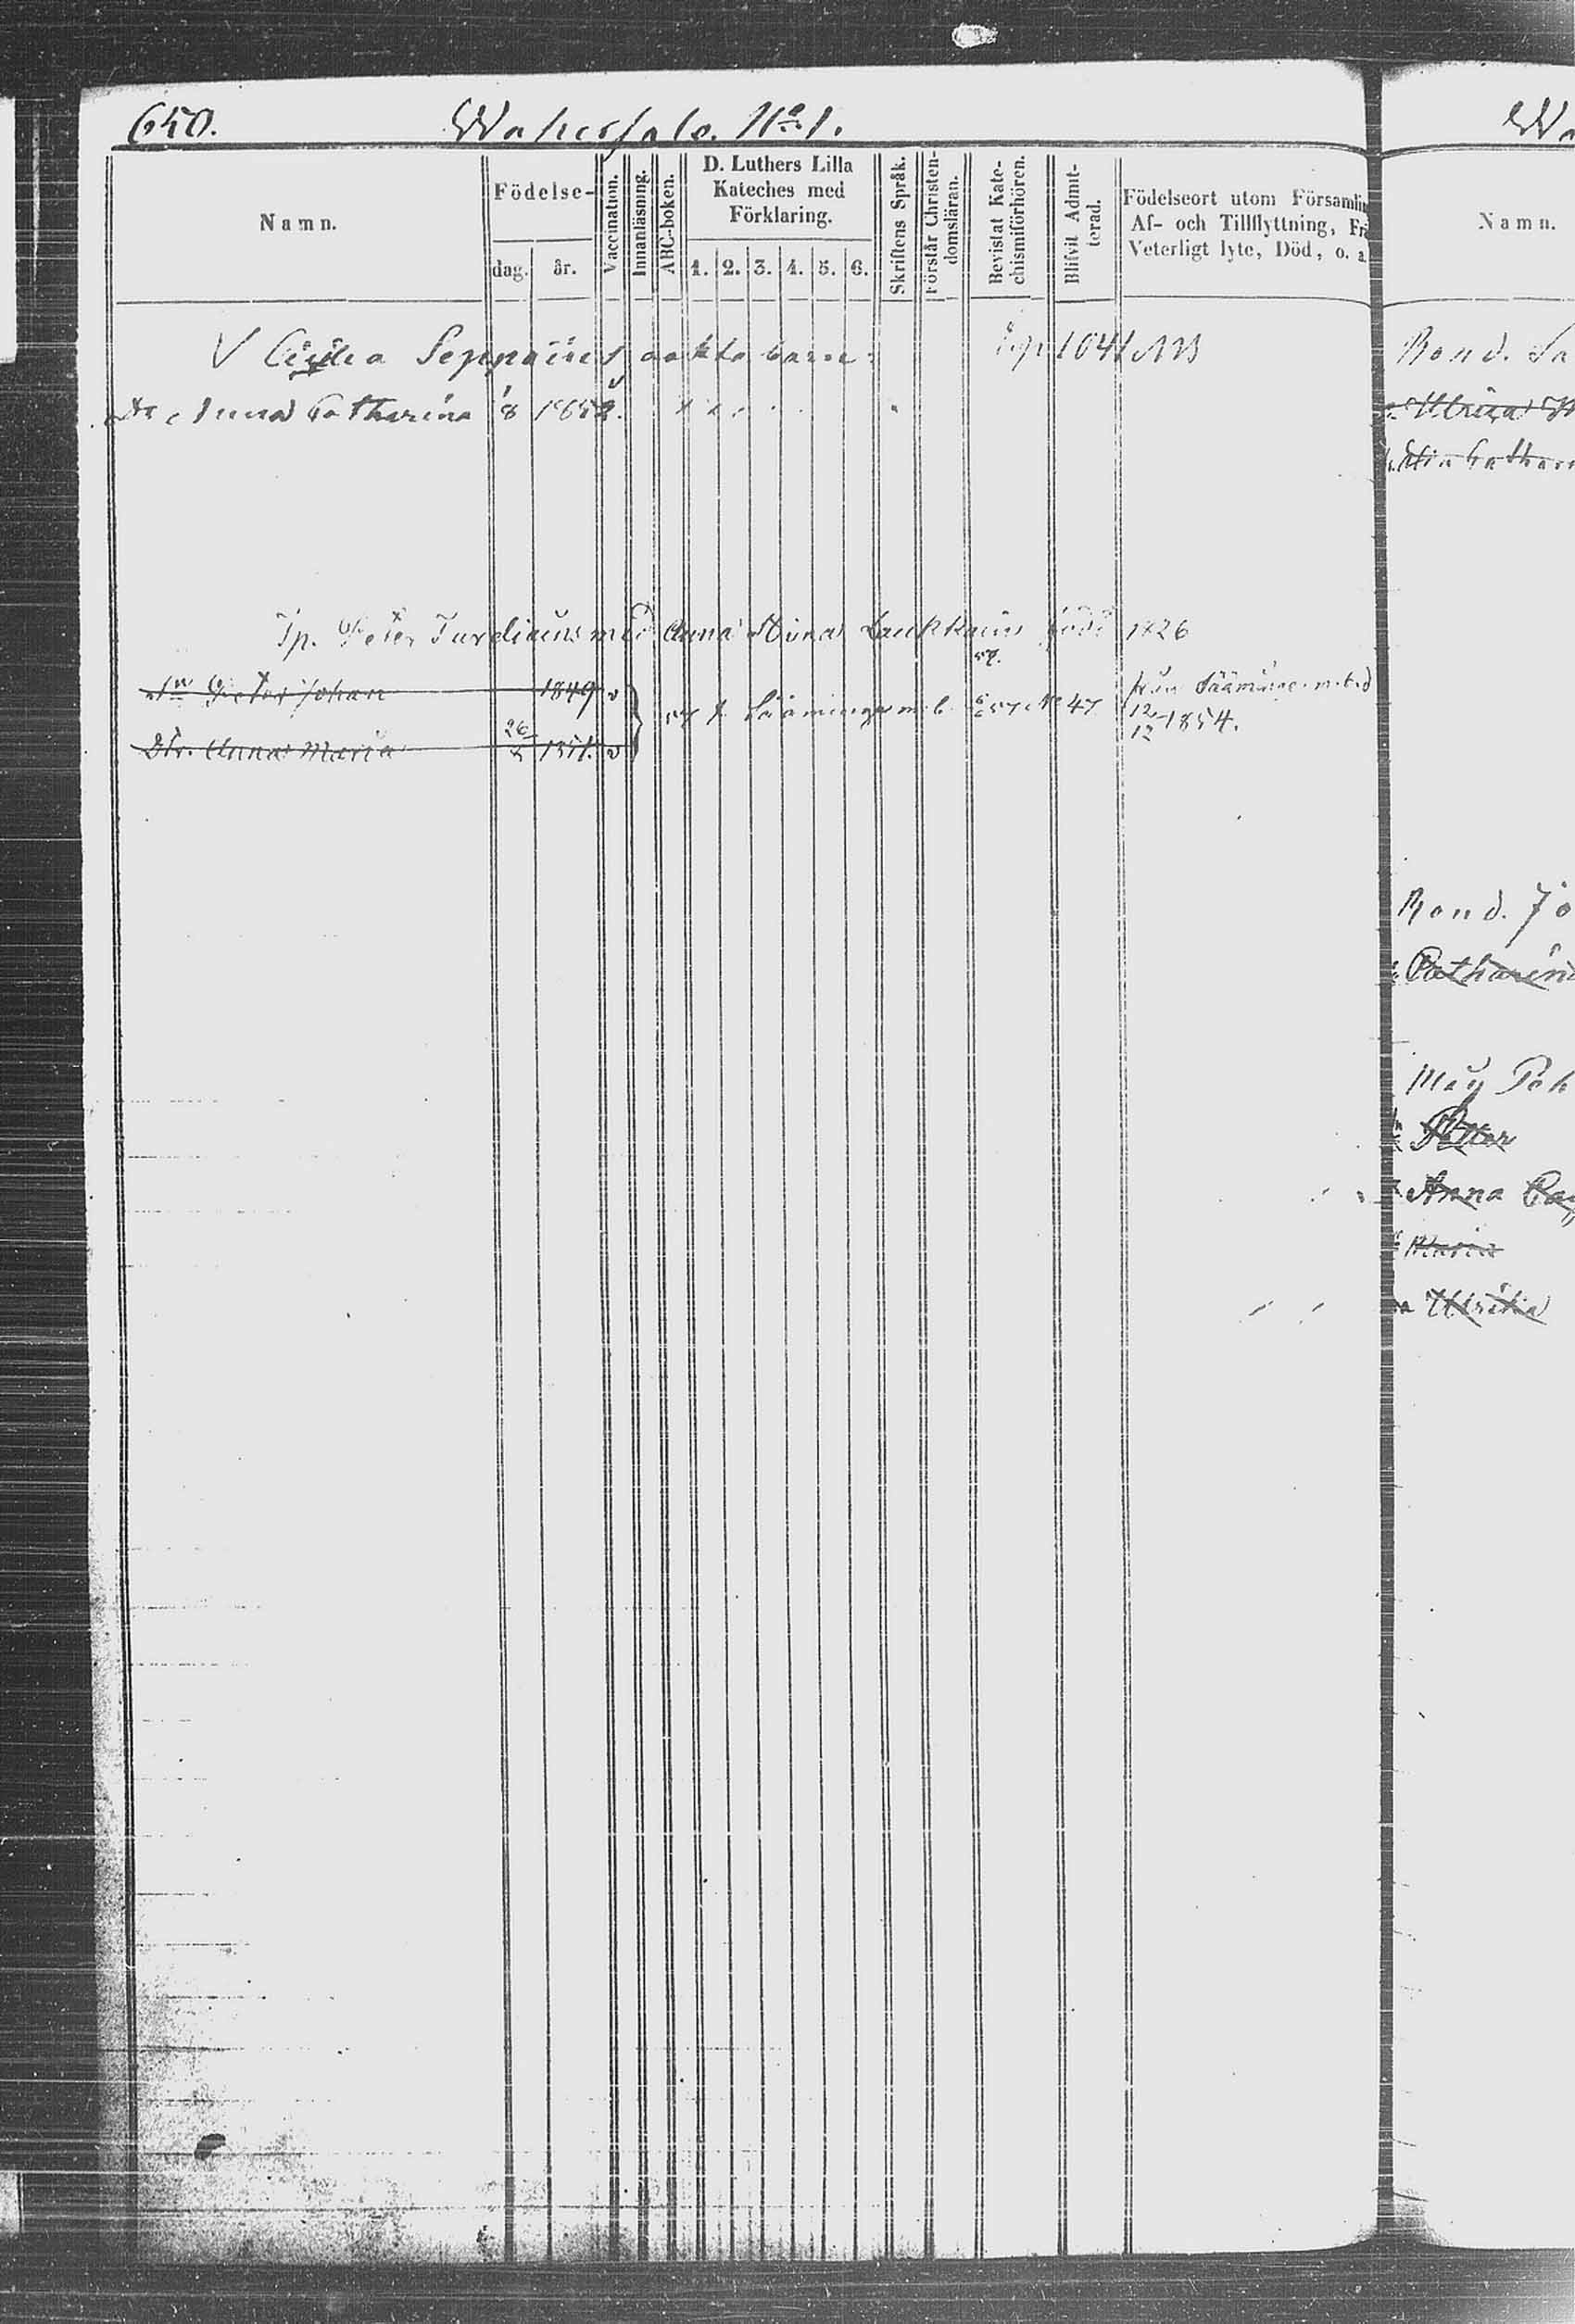 650. Wahersalo. No 1.
Namn.
Födelse-
dag. år.
Vaccination.
Innanläsning.
ABC-boken.
D. Luthers Lilla
Kateches med
Förklaring.
1. 2. 3. 4. 5. 6.
Skriftens Språk.
Förstår Christen-
domsläran.
Bevistat Kate-
chismiförhören.
Blifvit Admit-
terad.
Födelseort utom Församlin
Af- och Tillflyttning, Frä
Veterligt lyte, Död, o. a.
V Cecilia Seppäines oäkta barn: 1041
Dr Anna Catharina 8 1852.
Ip. Peter Turdiains med Anna Stina Laukkains född 1826
57.
Sn Petter Johan 1849 v
57 t. Sääminge m. b. 57 No 47
från Sääminge m. b. d
12/12 1854.
Dtr. Anna Maria 26 1851. v
Wa
Namn.
Bond. Sa
Ulrica
Catha
Bond. Jo
Catharina
Måg Peh
Petter
Anna Ca
Maria
Ulrika